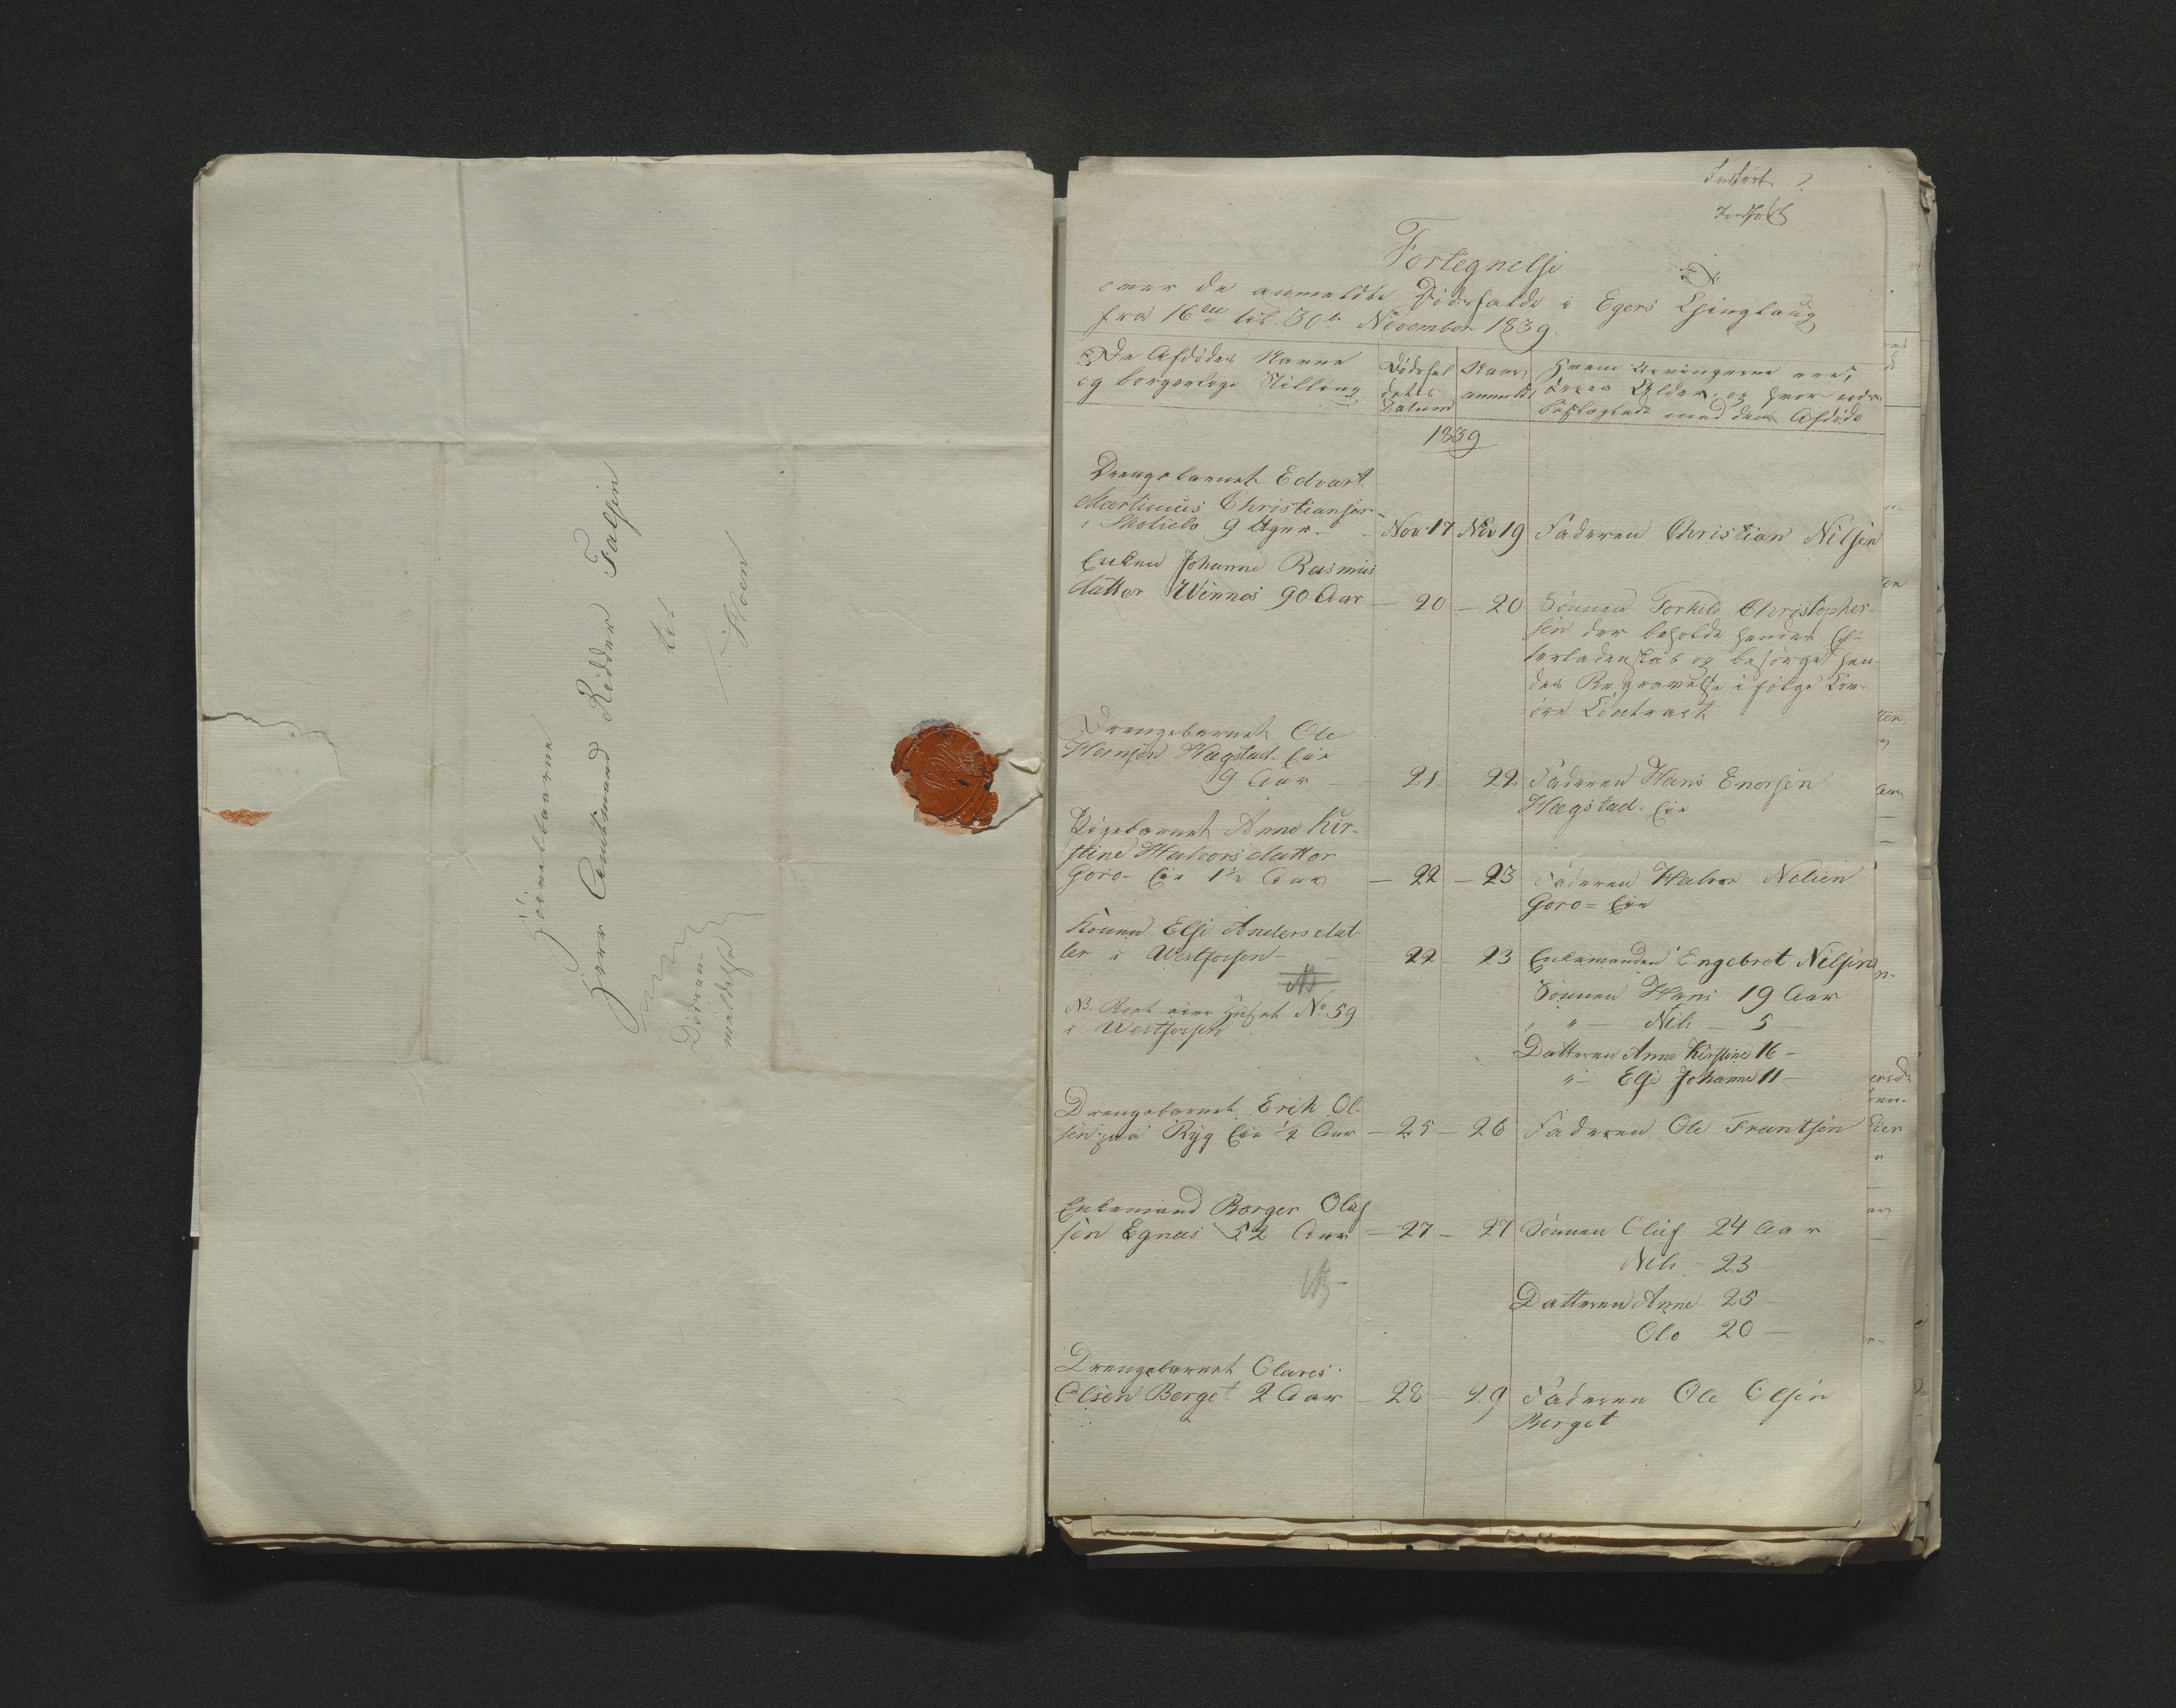 Höivelbaarne
Herr Amtmand Ridder Falsen
til
Hoen
Dödsan-
meldelse
Fortegnelse
over de anmeldte Dödsfalde i Egers Thinglaug
fra 16de til 30te November 1839.
De Afdödes Navne
og borgerlige Stilling
Dödsfal
dets
Datum
Naar
anmeldt
Hvem Arvingerne ere,
deres Alder, og hvor nær
beslægtede med den Afdöde
1839
Drengebarnet Edvart
Martinus Christiansen
i Skotselv 9 Uger
Nov 17
Nov 19
Faderen Christian Nilsen
Enken Johanne Rasmus
datter Winnes 90 Aar
— 20
— 20
Sönnen Torkild Christopher-
sen der beholde hendes Ef-
terladenskab og besörget hen-
des Begravelse i fölge
Contract
Drengebarnet Ole
Hansen Hagstad Eie
9 Aar
21
22
Faderen Hans Enersen
Hagstad Eie
Pigebarnet Anne Kir-
stine Halvorsdatter
Goro- Eie 1½ Aar
— 22
— 23
Faderen Halvor Nilsen
Goro= Eie
Konen Else Andersdat-
ter i Westfossen
22
23
Enkemanden Engebret Nilsen
Sönnen Hans 19 Aar
" — Nils — 5 —
Datteren Anne Kirstine 16 —
" — Else Johanne 11 —
NB. Boet eier Huset No 59
i Westfossen
Drengebarnet Erik Ol-
sen paa Ryg Eie ½ Aar
— 25
— 26
Faderen Ole Frantsen
Enkemand Borger Oluf
sen Egnes 52 Aar
— 27
— 27
Sönnen Oluf 24 Aar
Nils — 23
Datteren Anne 25 —
Ole 20 —
Drengebarnet Olaves
Olsen Berget 2 Aar
— 28
— 29
Faderen Ole Olsen
Berget